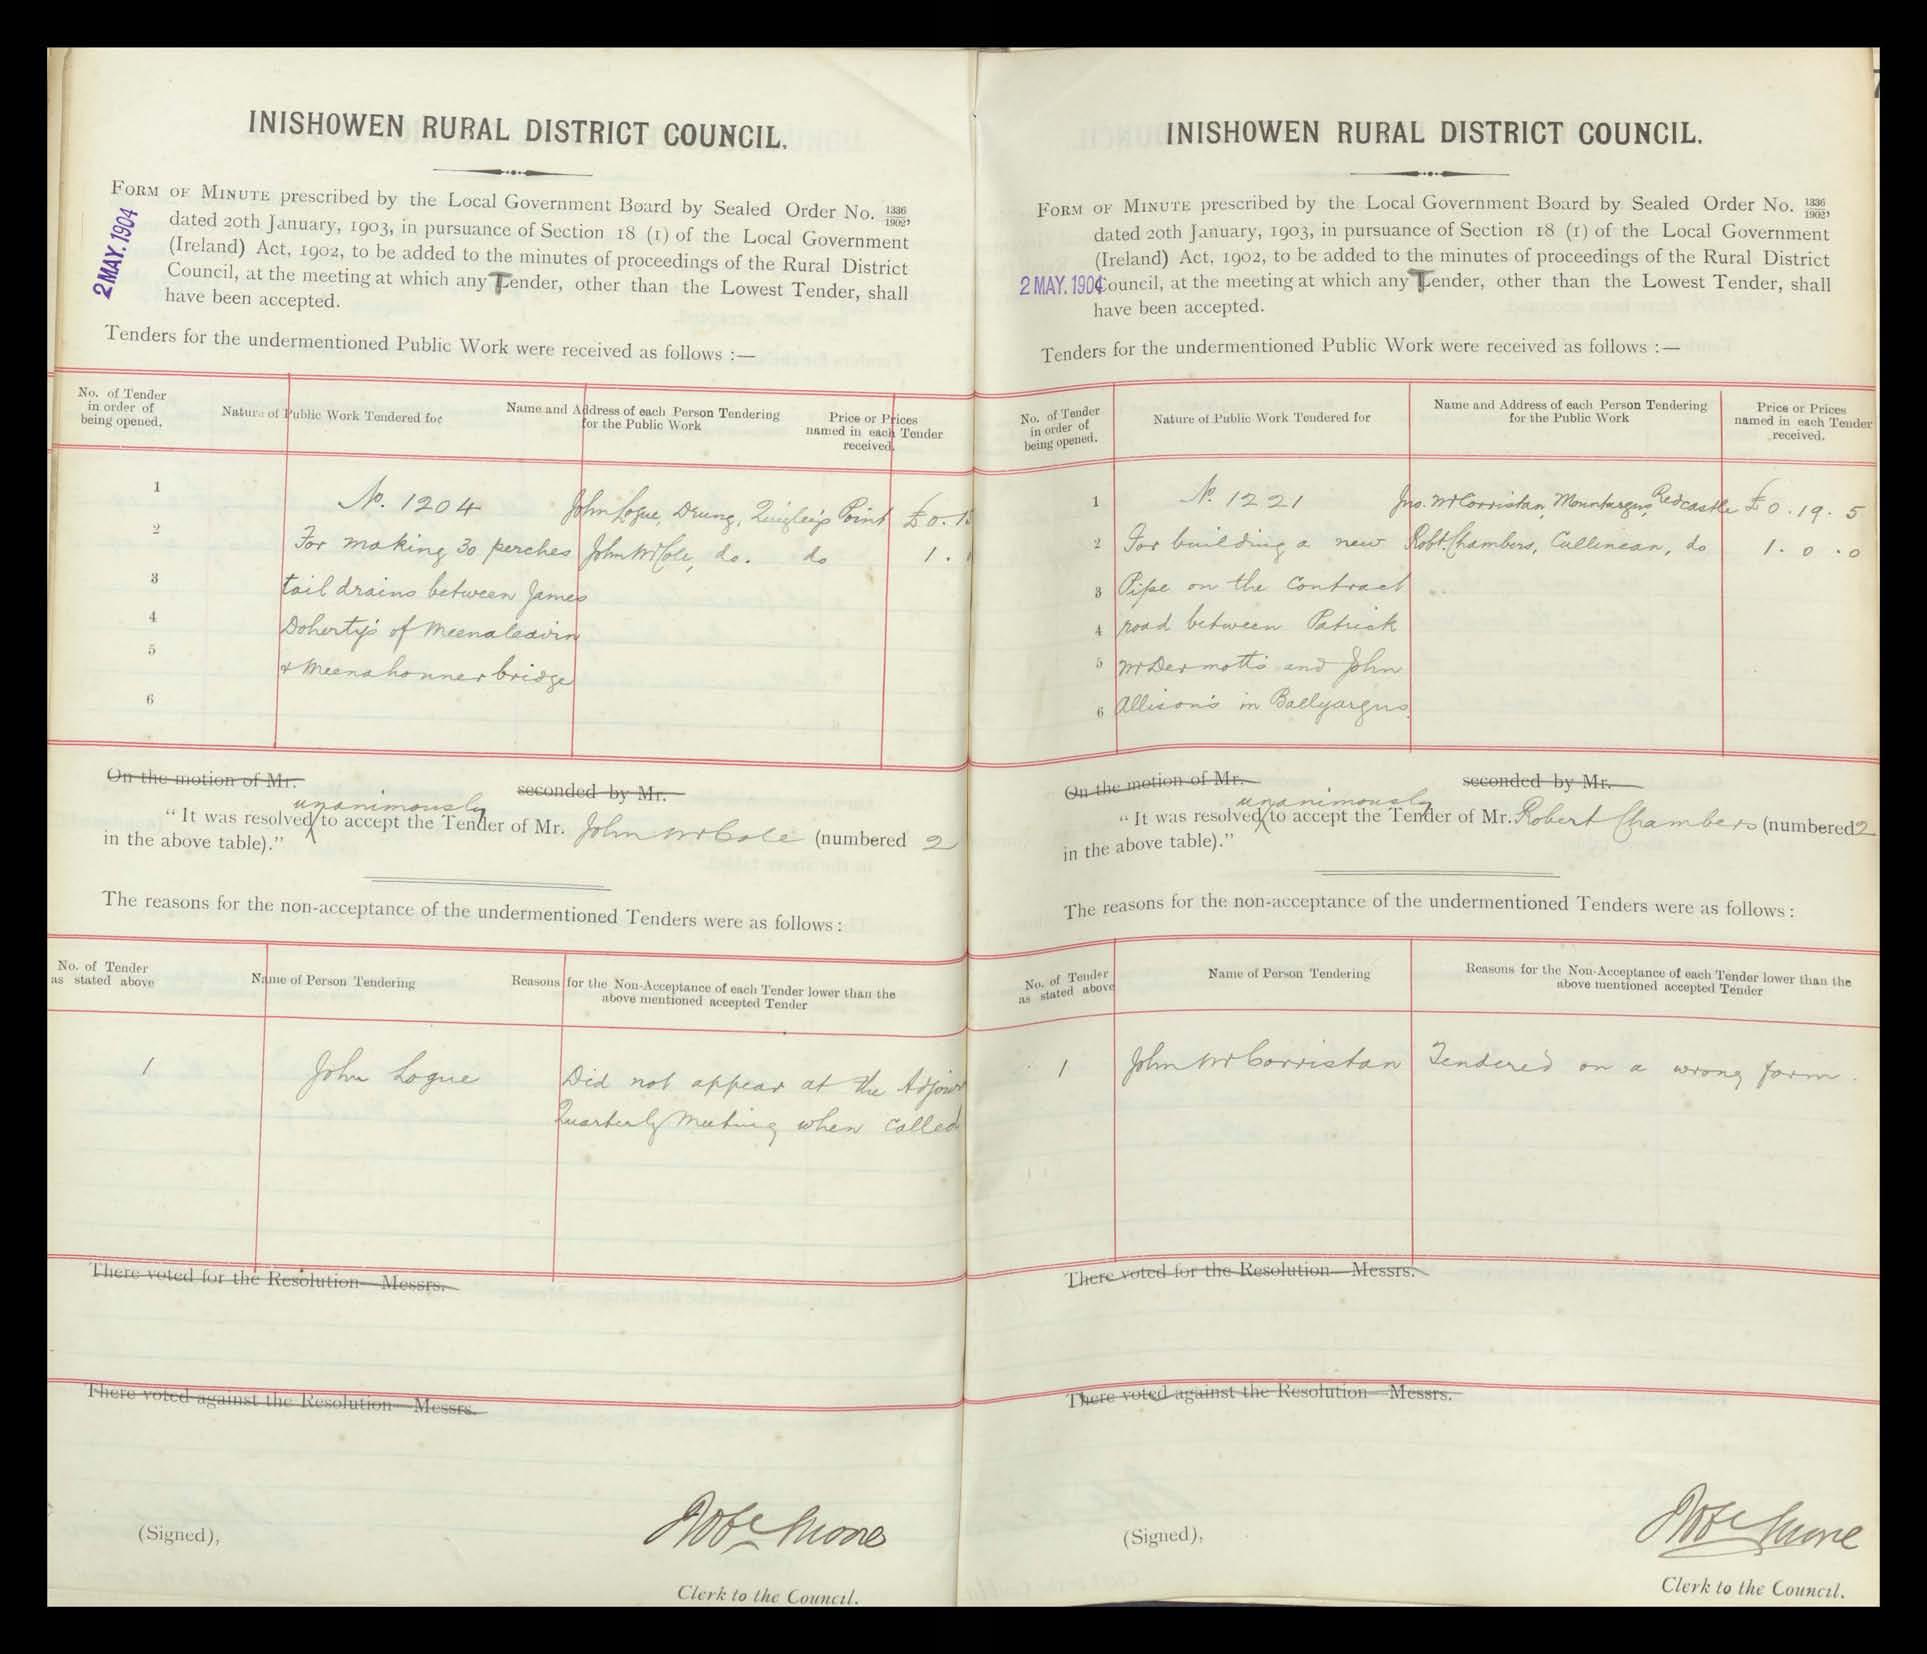 INISHOWEN RURAL DISTRICT COUNCIL.
FORM OF MINUTE prescribed by the Local Government Board by Sealed Order No. 1336/1902,
dated 20th January, 1903, in pursuance of Section 18 (1) of the Local Government
(Ireland) Act, 1902, to be added to the minutes of proceedings of the Rural District
Council, at the meeting at which any Tender, other than the Lowest Tender, shall
have been accepted.
2 MAY. 1904
Tenders for the undermentioned Public Work were received as follows :—
No. of Tender in order of being opened.
Nature of Public Work Tendered for
Name and Address of each Person Tendering for the Public Work
Price or Prices named in each Tender received.
1 No. 1204 John Logue, Drung, Quigley's Point £0.
2 For making 30 perches John McCole, do. do 1.
3 tail drains between James
4 Doherty's of Meenaleavin
5 & Meenahonner bridge
6
On the motion of Mr. seconded by Mr.
"It was resolved unanimously to accept the Tender of Mr. John McCole (numbered 2
in the above table)."
The reasons for the non-acceptance of the undermentioned Tenders were as follows :
No. of Tender as stated above
Name of Person Tendering
Reasons for the Non-Acceptance of each Tender lower than the above mentioned accepted Tender
1 John Logue Did not appear at the
Quarterly Meeting when called
There voted for the Resolution—Messrs.
There voted against the Resolution—Messrs.
(Signed),
Clerk to the Council.
INISHOWEN RURAL DISTRICT COUNCIL.
FORM OF MINUTE prescribed by the Local Government Board by Sealed Order No. 1336/1902,
dated 20th January, 1903, in pursuance of Section 18 (1) of the Local Government
(Ireland) Act, 1902, to be added to the minutes of proceedings of the Rural District
2 MAY. 1904 Council, at the meeting at which any Tender, other than the Lowest Tender, shall
have been accepted.
Tenders for the undermentioned Public Work were received as follows :—
No. of Tender in order of being opened.
Nature of Public Work Tendered for
Name and Address of each Person Tendering for the Public Work
Price or Prices named in each Tender received.
1 No. 1221 Jno. McCorristan, Redcastle £0.19.5
2 For building a new Robt. Chambers, Cullinean, do 1.0.0
3 Pipe on the contract
4 road between Patrick
5 McDermott's and John
6 Allison's in Ballyargus.
On the motion of Mr. seconded by Mr.
"It was resolved unanimously to accept the Tender of Mr. Robert Chambers (numbered 2
in the above table)."
The reasons for the non-acceptance of the undermentioned Tenders were as follows :
No. of Tender as stated above
Name of Person Tendering
Reasons for the Non-Acceptance of each Tender lower than the above mentioned accepted Tender
1 John McCorristan Tendered on a wrong form.
There voted for the Resolution—Messrs.
There voted against the Resolution—Messrs.
(Signed),
Clerk to the Council.